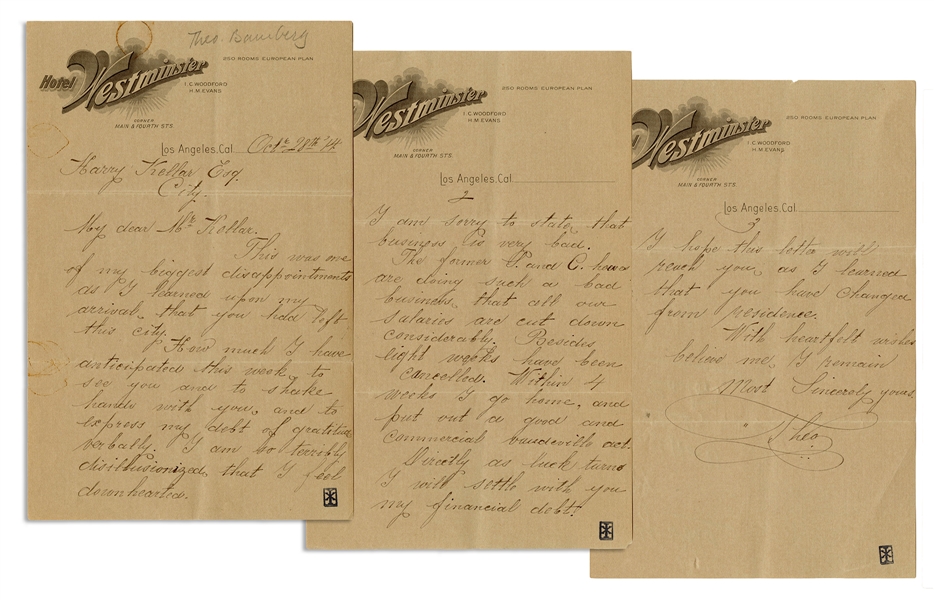 Theo. Bamberg
Hotel Westminster
250 ROOMS EUROPEAN PLAN
T. C. WOODFORD
H. M. EVANS
CORNER
MAIN & FOURTH STS.
Los Angeles, Cal. Octr. 28th '14
Harry Kellar Esq.
City.
My dear Mr. Kellar.
This was one
of my biggest disappointments
as I learned upon my
arrival, that you had left
this city.
How much I have
anticipated this week, to
see you and to shake
hands with you, and to
express my debt of gratitude
verbally. I am so terribly
disillusionized, that I feel
downhearted.
Westminster
250 ROOMS EUROPEAN PLAN
T. C. WOODFORD
H. M. EVANS
CORNER
MAIN & FOURTH STS.
Los Angeles, Cal.
2
I am sorry to state, that
business is very bad.
The former S. and C. houses
are doing such a bad
business, that all our
salaries are cut down
considerably. Besides
eight weeks have been
cancelled. Within 4
weeks I go home, and
put out a good and
commercial vaudeville act.
Directly as luck turns
I will settle with you
my financial debt!
Westminster
250 ROOMS EUROPEAN PLAN
T. C. WOODFORD
H. M. EVANS
CORNER
MAIN & FOURTH STS.
Los Angeles, Cal.
3
I hope this letter will
reach you, as I learned
that you have changed
from residence.
With heartfelt wishes
believe me, I remain
Most Sincerely yours,
"Theo